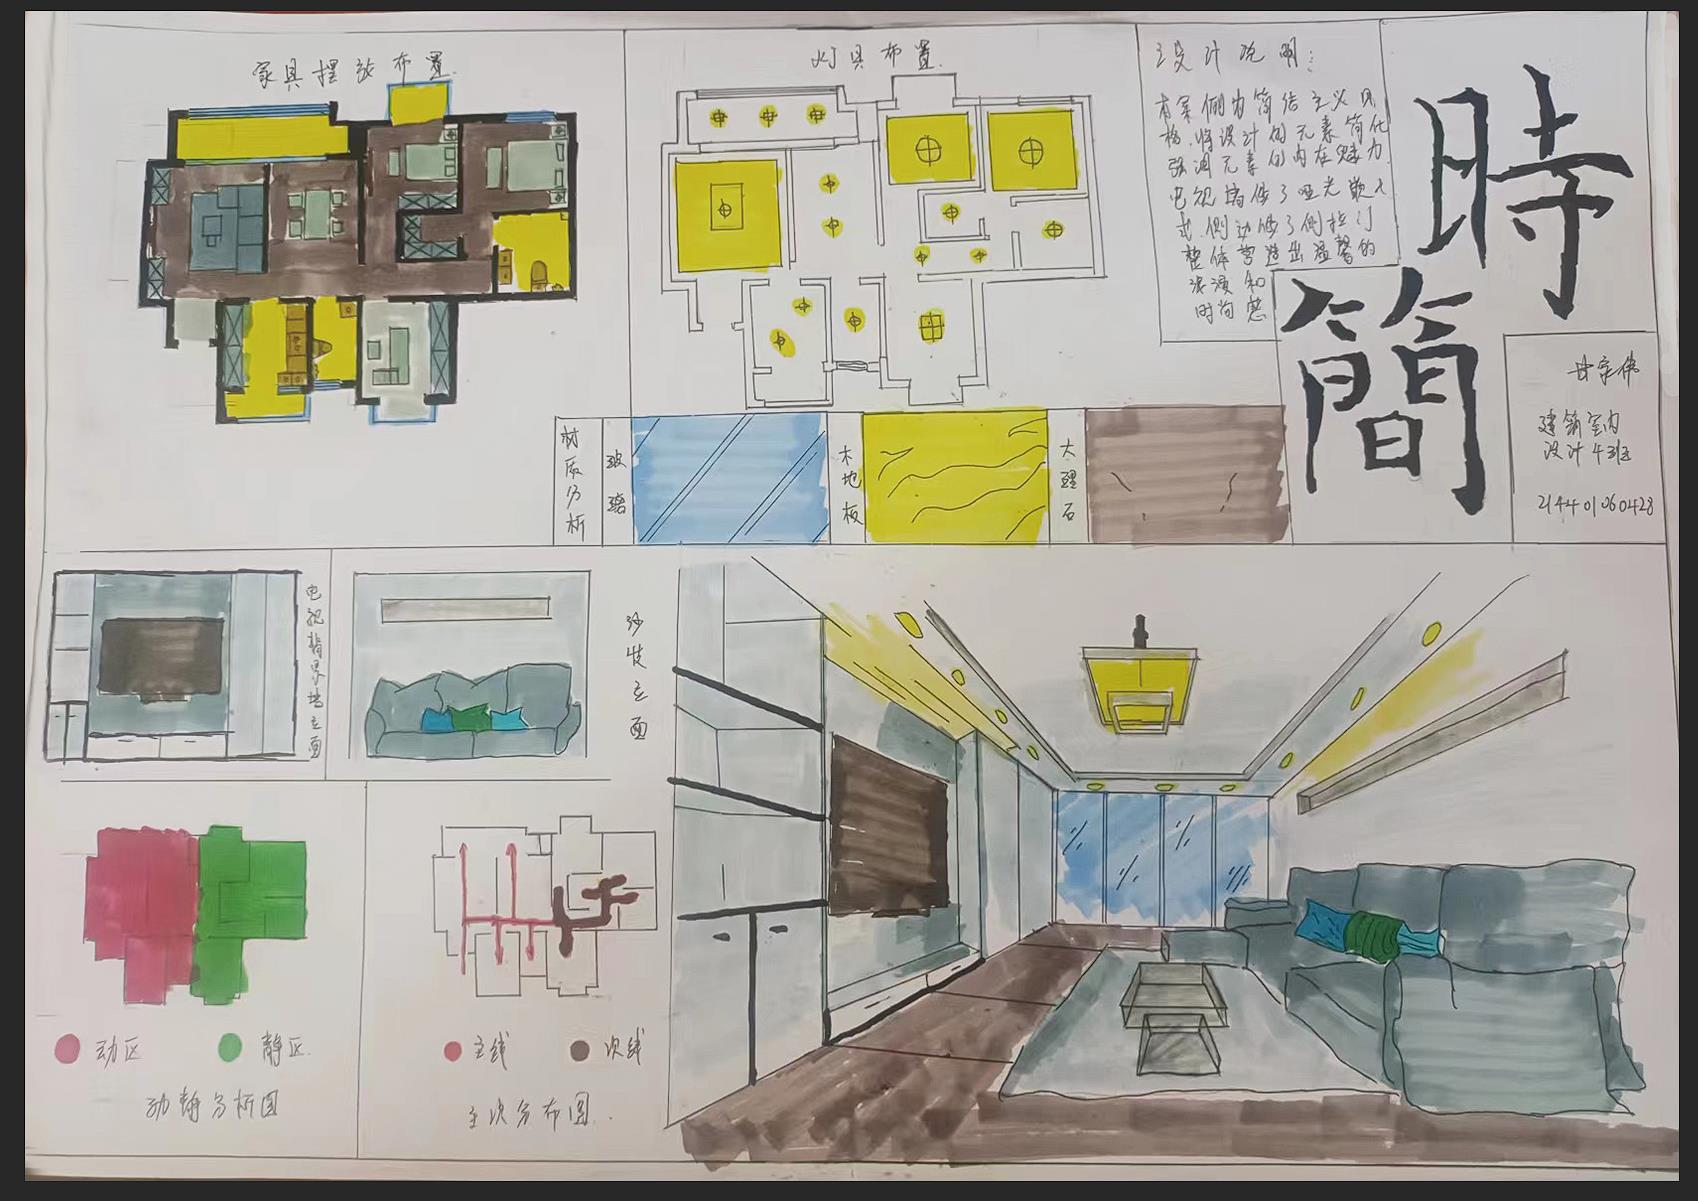 家具摆放布置
灯具布置
设计说明:
本案例为简洁主义风
格.将设计的元素简化
强调元素的内在魅力.
电视墙做了哑光嵌入
式.侧边做了侧拉门
整体营造出温馨的
浪漫和
时尚感
時
簡
建筑室内
设计4班
214401060428
材质分析
玻璃
木地板
大理石
电视背景墙立面
沙发立面
动区
静区.
动静分析图
主线
次线
主次分布图.